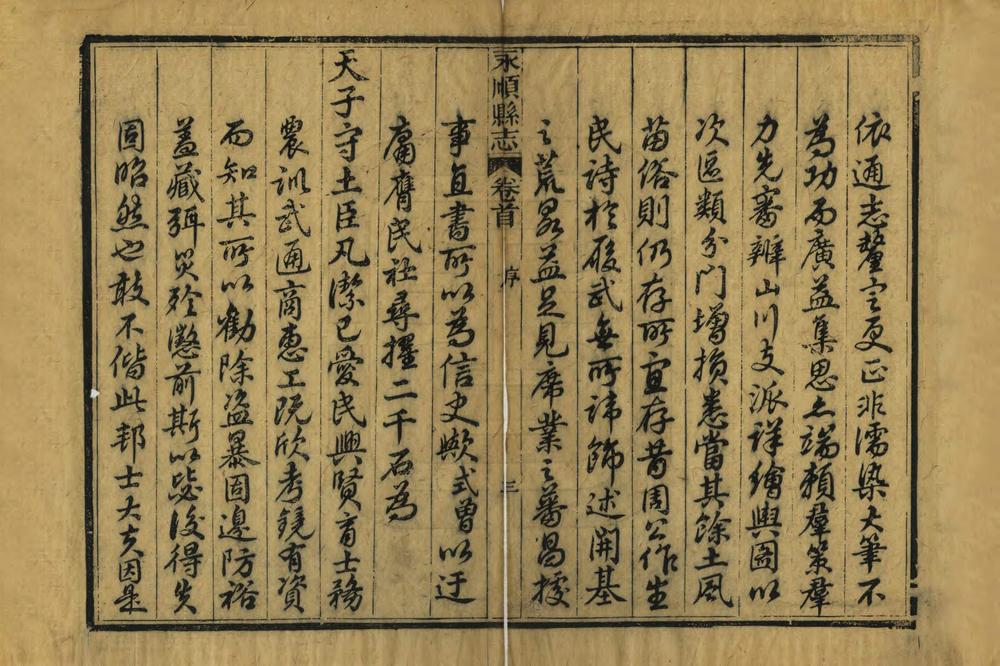 依通志釐定更正非濡染大筆不
為功而廣益集思之端賴羣策羣
力先審辦山川支派詳繪輿圖以
次區類分門增損悉當其餘土風
苗俗則仍存所宜存昔周公作生
民詩於履武無所諱飾述開基
之荒昜益足見席業之蕃昌據
永順縣志
卷首
序
三
事直書所以為信史歟式曾以迂
庸膺民社尋擢二千石為
天子守土臣凡潔已愛民興賢育士務
農訓武通商惠工既欣考鏡有資
而知其所以勸除盜暴固邊防裕
蓋藏弭災殄愍前斯以毖後得失
固昭然也敢不偕此邦士大夫因是